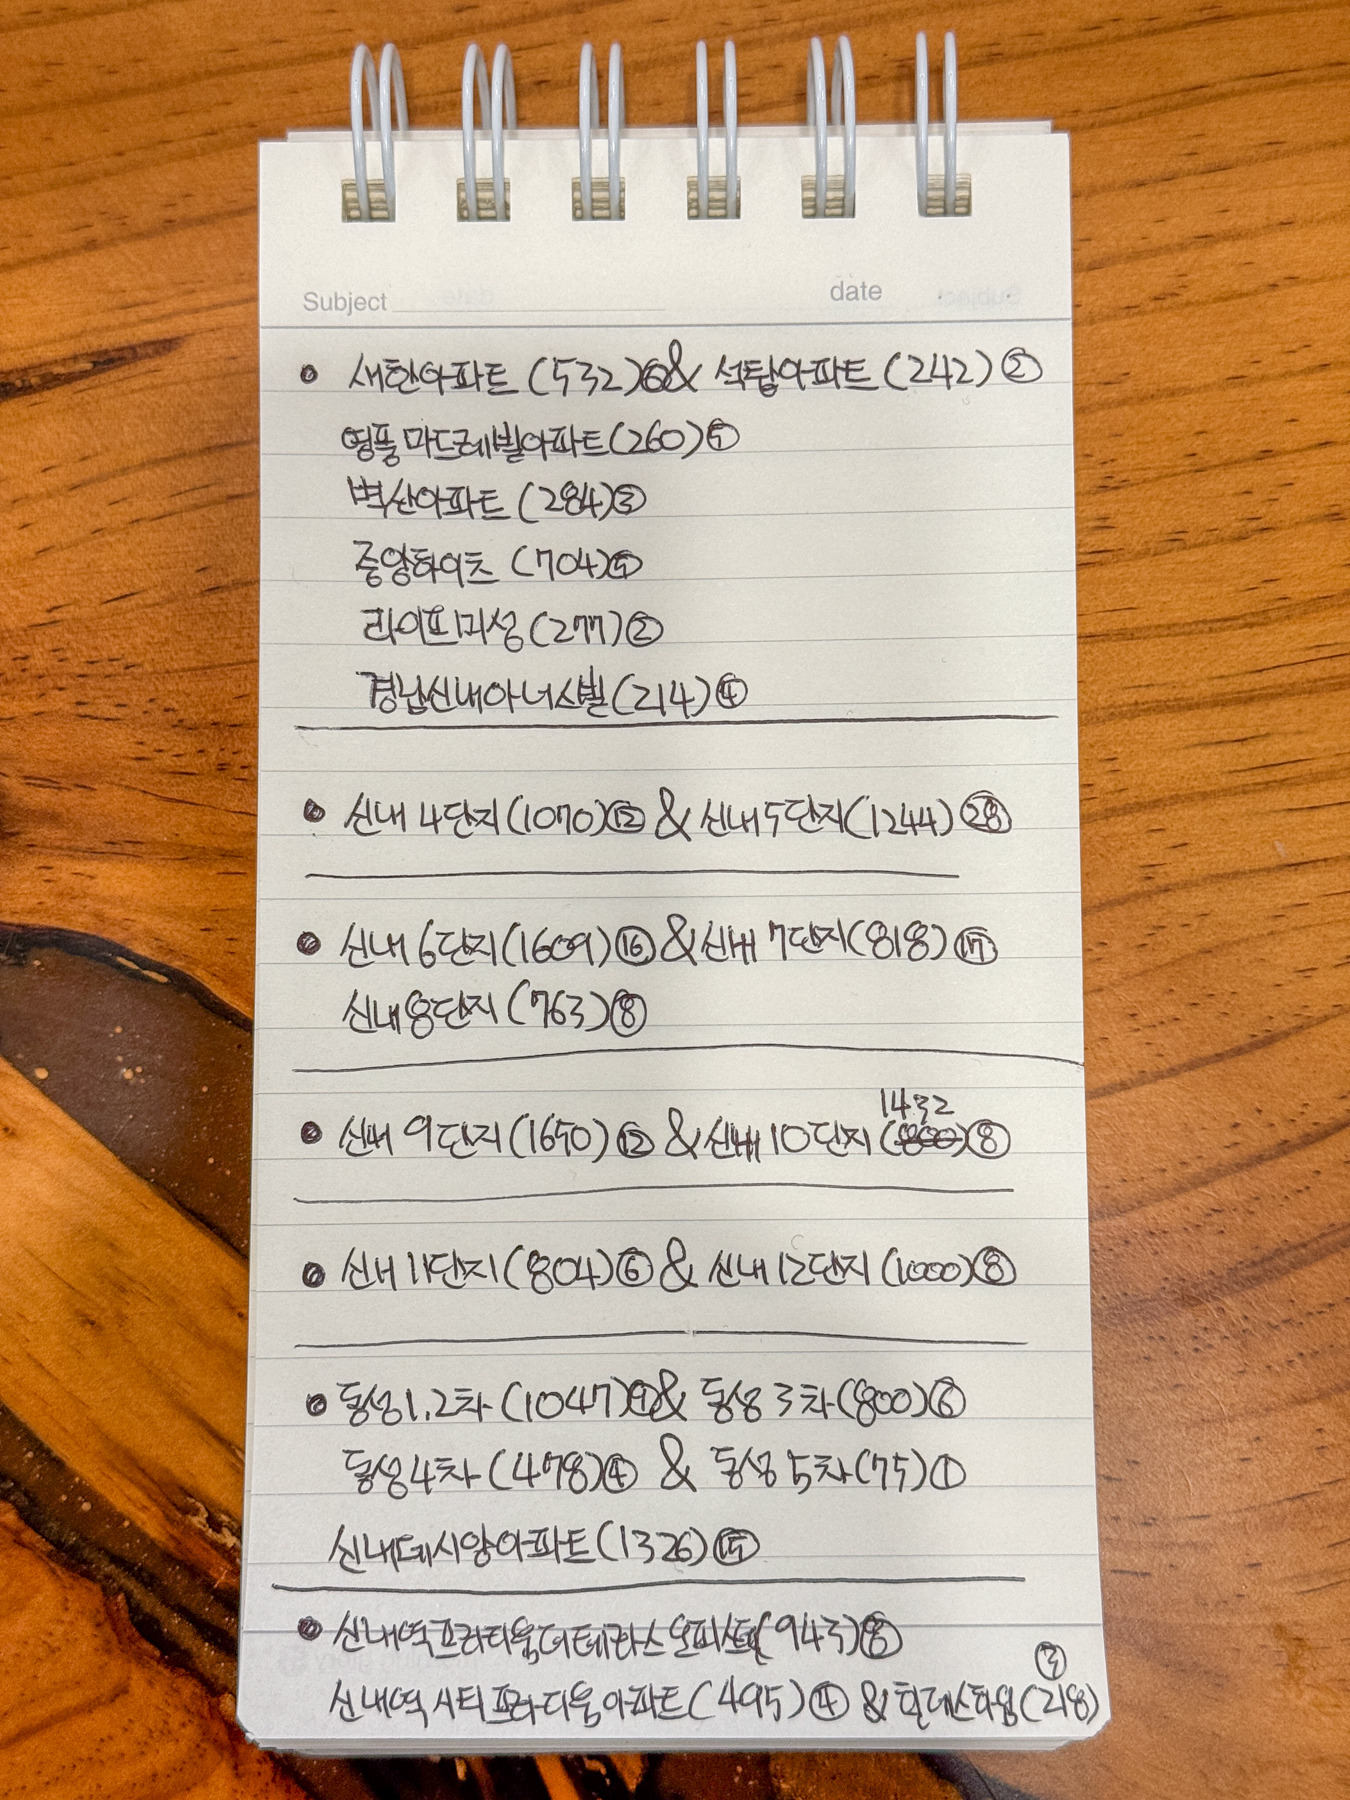 Subject date
• 새한아파트 (532)⑥ & 석탑아파트 (242) ②
영풍마드레빌아파트(260)⑤
벽산아파트 (284)③
중앙하이츠 (704)④
라이프미성(277)②
경남신내아너스빌(214)④
• 신내 4단지(1070)⑫ & 신내5단지(1244) ㉘
• 신내 6단지(1609)⑯ & 신내 7단지(818) ⑰
신내8단지 (763)⑧
1432
• 신내 9단지(1650)⑫ & 신내 10단지 (800)⑧
• 신내 11단지(804)⑥ & 신내 12단지 (1000)⑧
• 동성1,2차 (1047)⑨ & 동성 3차(800)⑥
동성4차 (478)④ & 동성 5차(75)①
신내데시앙아파트(1326)⑮
• 신내역프라디움더테라스오피스텔(943)⑧
③
신내역시티프라디움아파트(495)④ & 힐데스하임(218)